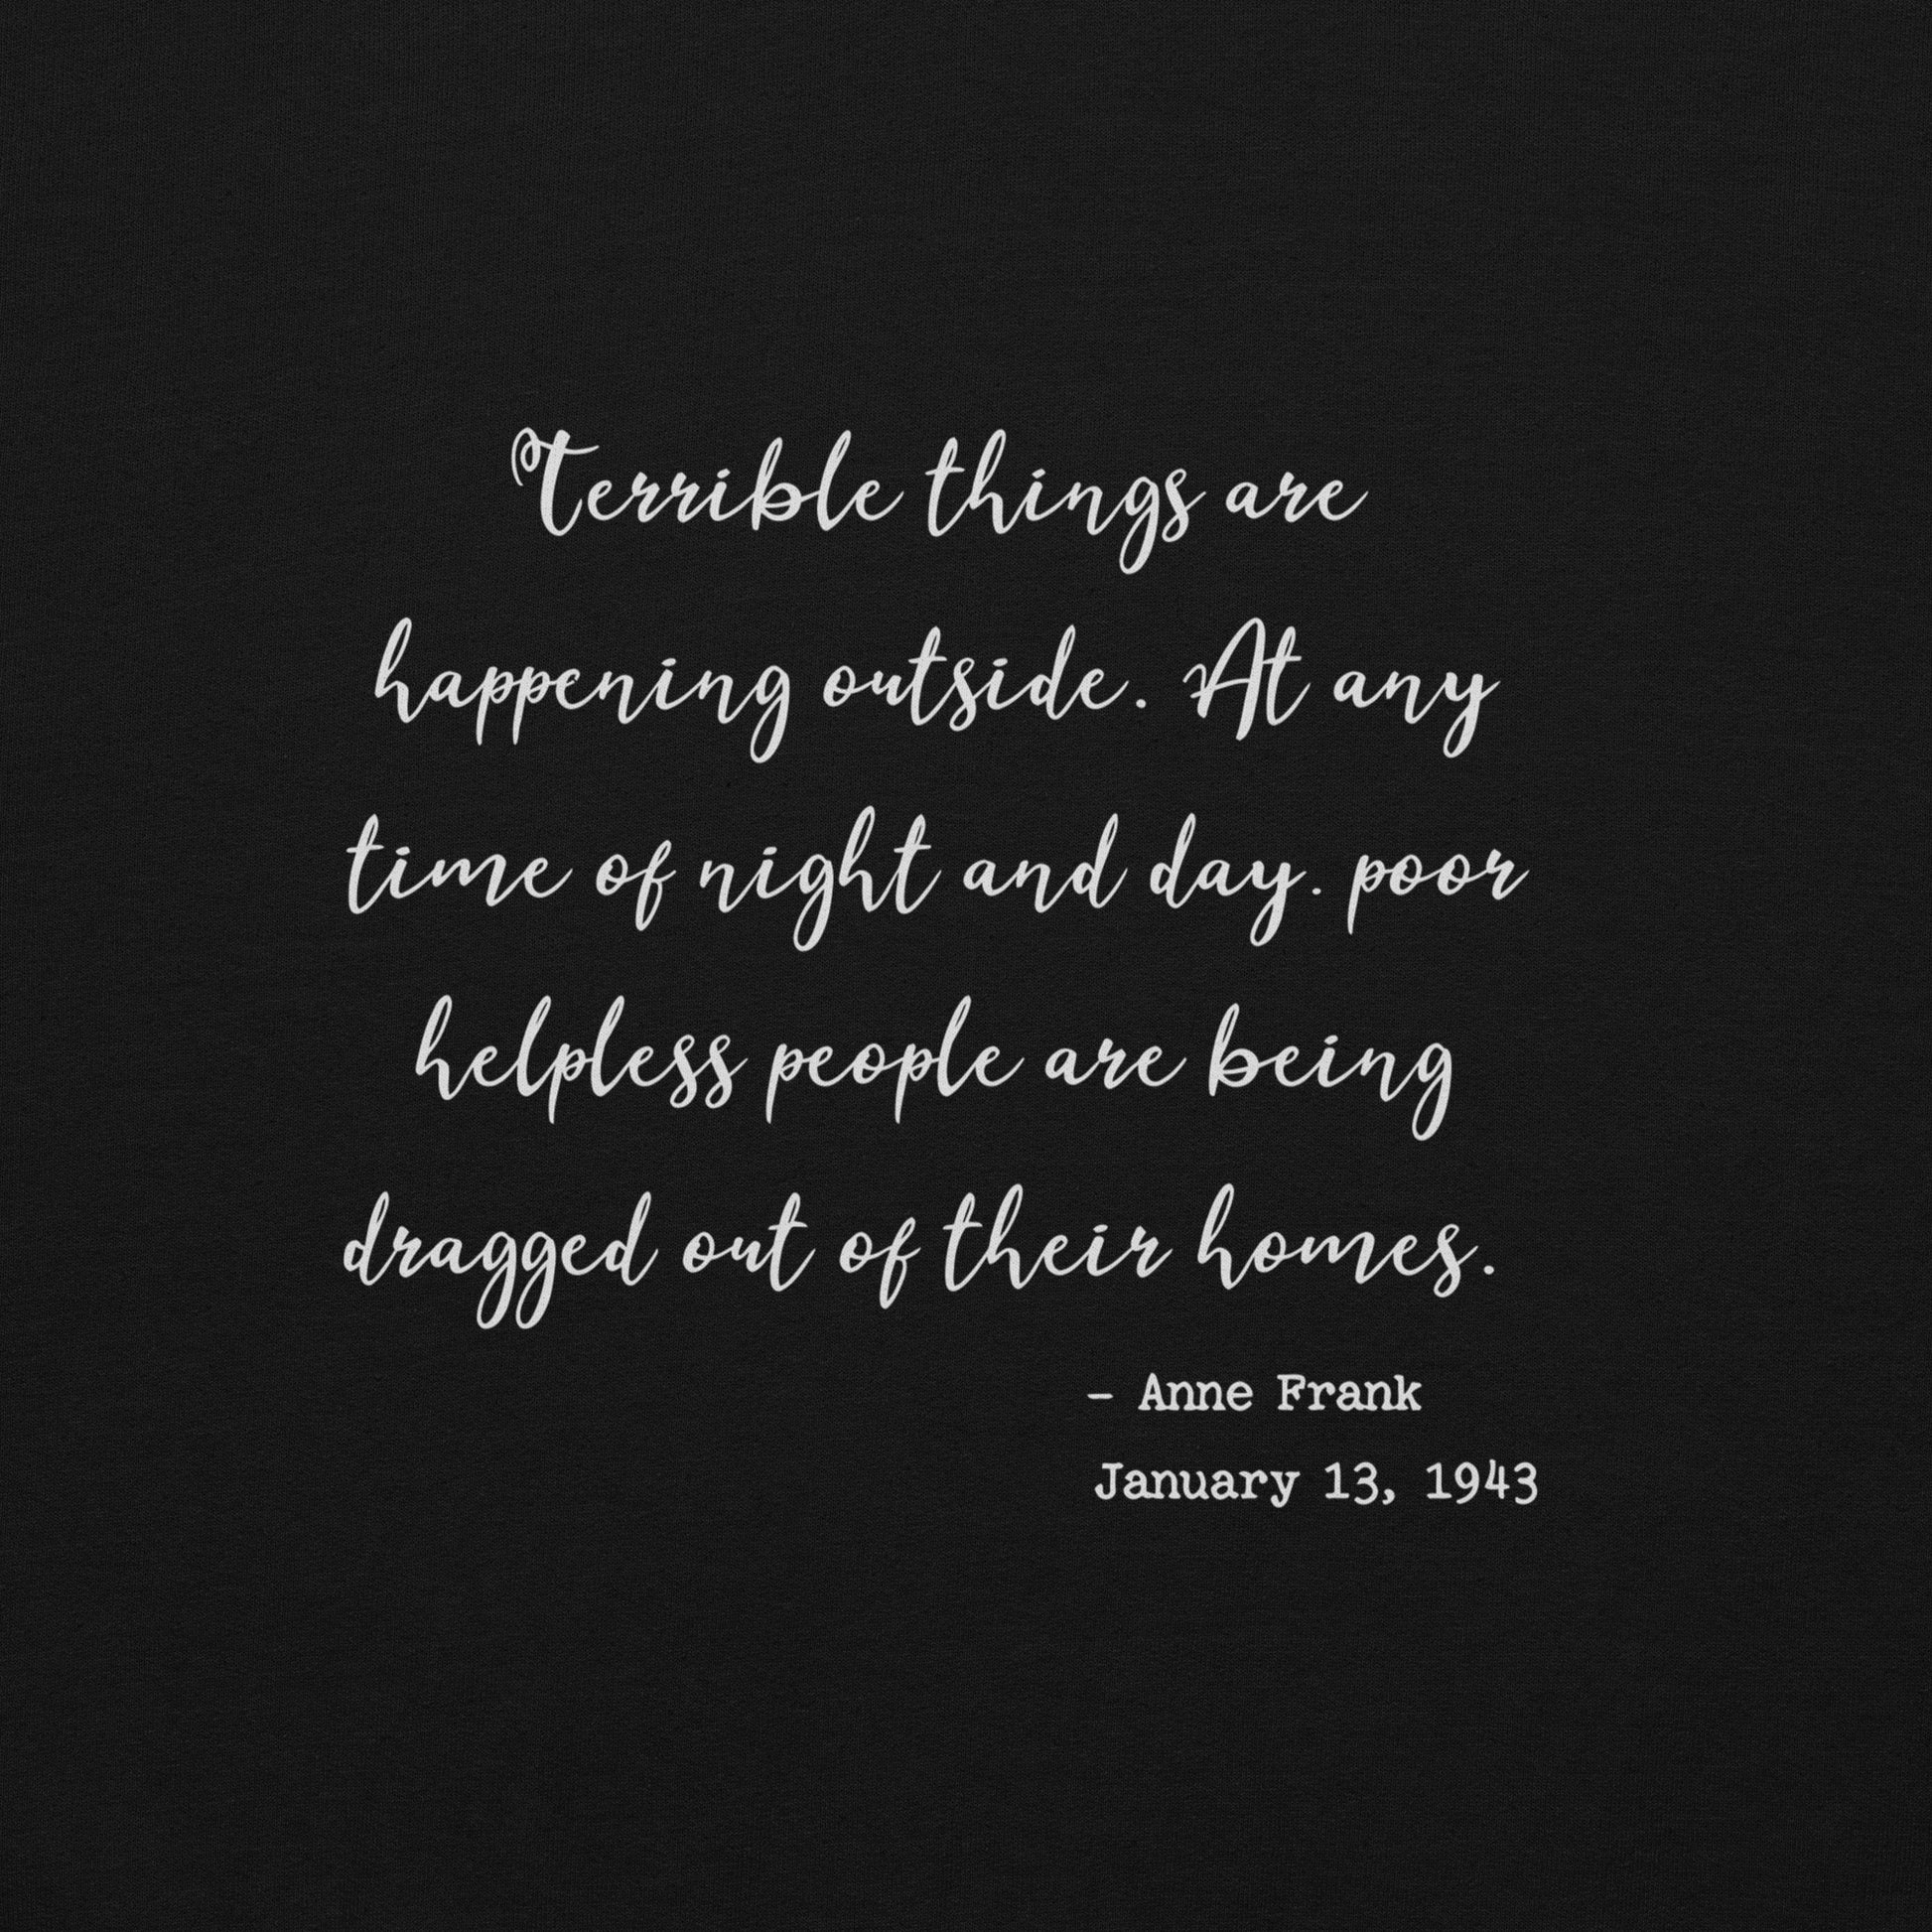 Terrible things are
happening outside. At any
time of night and day. poor
helpless people are being
dragged out of their homes.
– Anne Frank
January 13, 1943